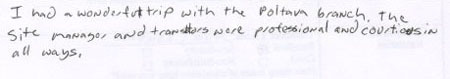 I had a wonderful trip with the Poltava branch. The
Site manager and transl​ators were professional and courtious in
all ways.